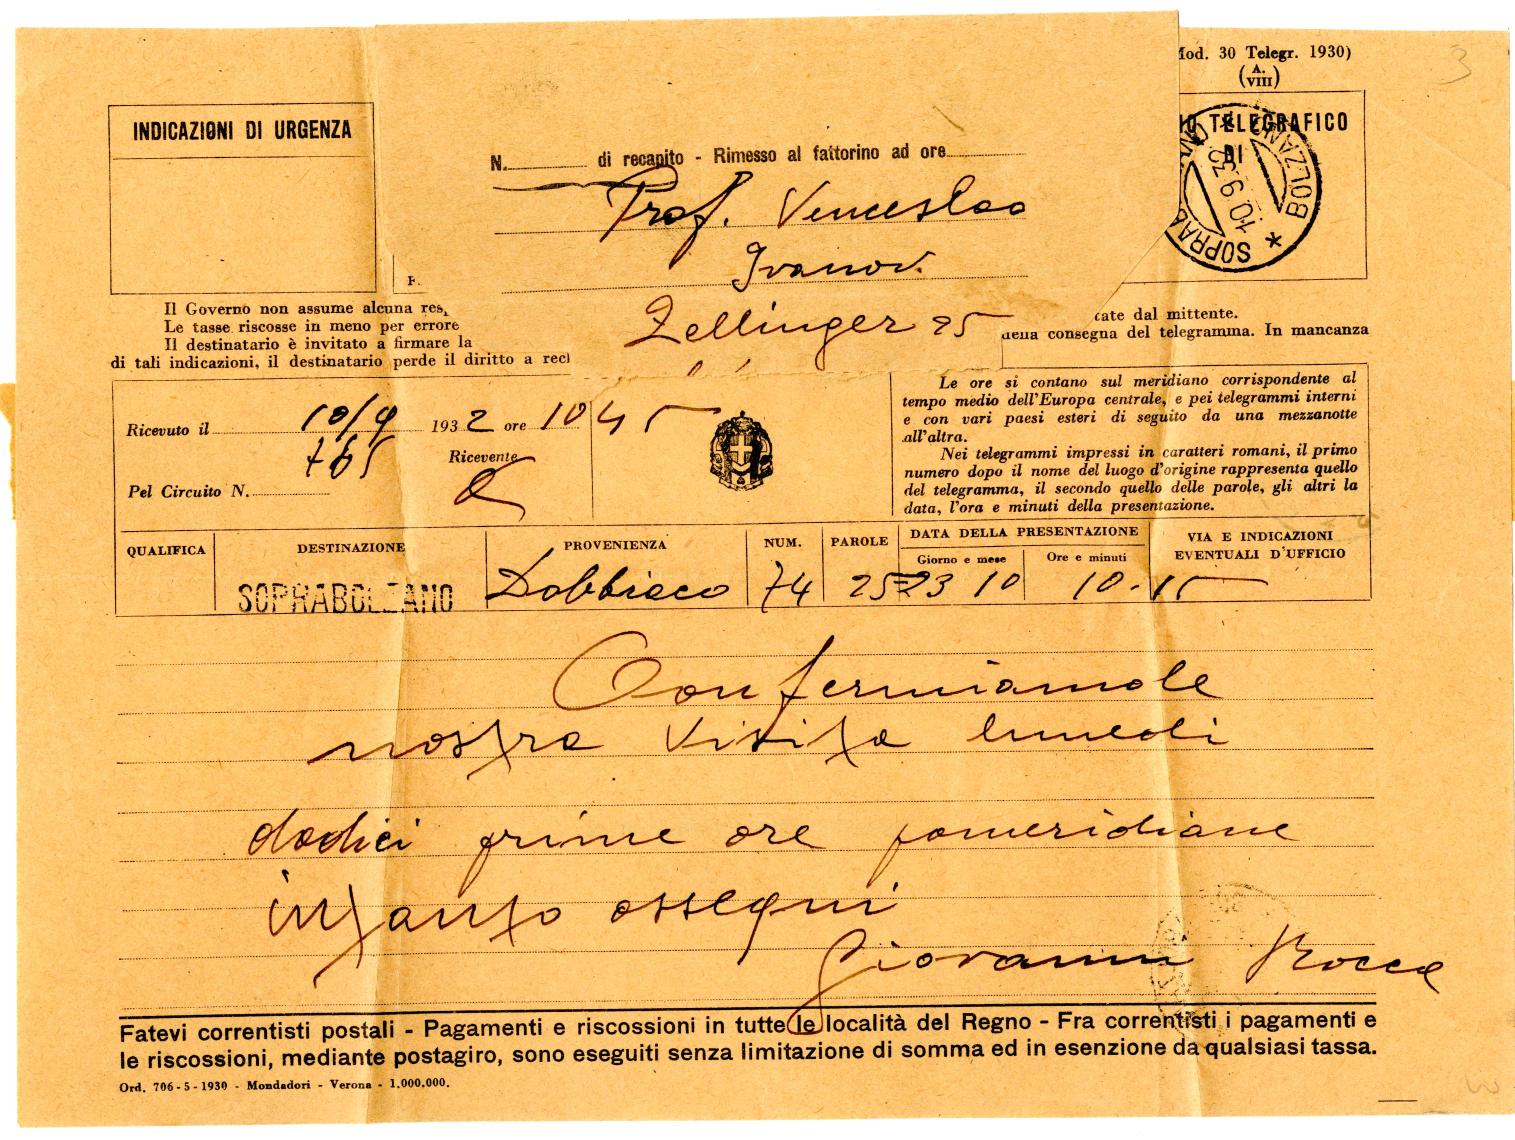 (Mod. 30 Telegr. 1930)
(A. VIII)
3
INDICAZIONI DI URGENZA
N. di recapito - Rimesso al fattorino ad ore
TELEGRAFICO
DI
SOPRABOLZANO * BOLZANO *
10.9.32
Prof. Venceslao
Ivanov.
Zellinger 95
Il Governo non assume alcuna res
cate dal mittente.
Le tasse riscosse in meno per errore
della consegna del telegramma. In mancanza
Il destinatario è invitato a firmare la
di tali indicazioni, il destinatario perde il diritto a recl
Ricevuto il 10/9 1932 ore 10 45
765
Ricevente
Pel Circuito N.
Le ore si contano sul meridiano corrispondente al
tempo medio dell'Europa centrale, e pei telegrammi interni
e con vari paesi esteri di seguito da una mezzanotte
all'altra.
Nei telegrammi impressi in caratteri romani, il primo
numero dopo il nome del luogo d'origine rappresenta quello
del telegramma, il secondo quello delle parole, gli altri la
data, l'ora e minuti della presentazione.
QUALIFICA DESTINAZIONE PROVENIENZA NUM. PAROLE DATA DELLA PRESENTAZIONE VIA E INDICAZIONI
EVENTUALI D'UFFICIO
Giorno e mese Ore e minuti
SOPRABOLZANO Dobbiaco 74 25=23 10 10-15
Confermiamole
nostra visita lunedi
dodici prime ore pomeridiane
intanto ossequi
Giovanni Rocca
Fatevi correntisti postali - Pagamenti e riscossioni in tutte le località del Regno - Fra correntisti i pagamenti e
le riscossioni, mediante postagiro, sono eseguiti senza limitazione di somma ed in esenzione da qualsiasi tassa.
Ord. 706-5-1930 - Mondadori - Verona - 1.000.000.